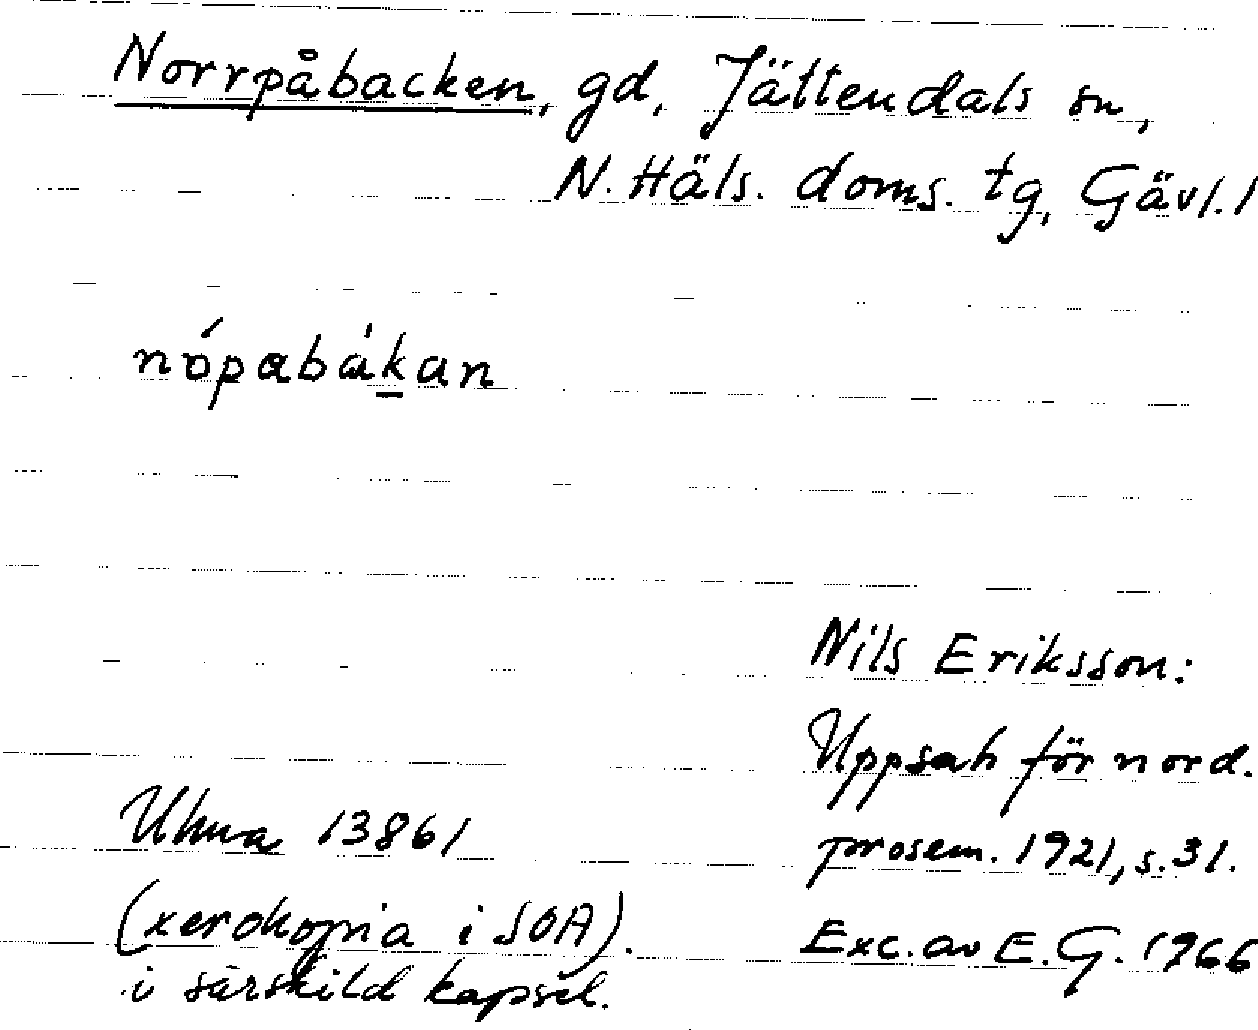 Norrpåbacken, gd, Jättendals sn,
N. Häls. doms. tg, Gävl. l
nópabákan
Nils Eriksson:
Uppsats för nord.
prosem. 1921, s. 31.
Uhma 13861
(xerokopia i SOA).
i särskild kapsel.
Exc. av E. G. 1966